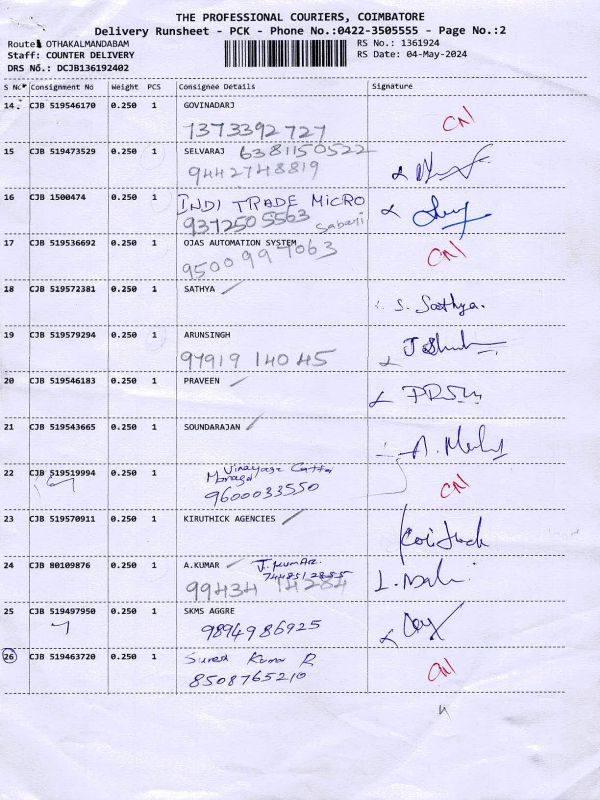 THE PROFESSIONAL COURIERS, COIMBATORE
Delivery Runsheet - PCK - Phone No.:0422-3505555 - Page No.:2
Route: OTHAKALMANDABAM RS No.: 1361924
Staff: COUNTER DELIVERY RS Date: 04-May-2024
DRS No.: DCJB136192402
S No Consignment No Weight PCS Consignee Details Signature
14. CJB 519546170 0.250 1 GOVINADARJ
1373392727 CN
15 CJB 519473529 0.250 1 SELVARAJ 6381150522
9442748819
16 CJB 1500474 0.250 1 INDI TRADE MICRO
9372505563 Sabari
17 CJB 519536692 0.250 1 OJAS AUTOMATION SYSTEM CN
9500997063
18 CJB 519572381 0.250 1 SATHYA S. Sathya.
19 CJB 519579294 0.250 1 ARUNSINGH
97919 14045
20 CJB 519546183 0.250 1 PRAVEEN
21 CJB 519543665 0.250 1 SOUNDARAJAN
22 CJB 519519994 0.250 1 Vinayaga
9600033550 CN
23 CJB 519570911 0.250 1 KIRUTHICK AGENCIES
24 CJB 80109876 0.250 1 A.KUMAR J. KUMAR.
99434 14284
25 CJB 519497950 0.250 1 SKMS AGGRE
9894986925
26 CJB 519463720 0.250 1 Suresh Kumar R
8508765210 CN